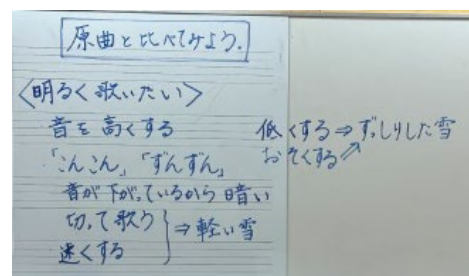 原曲と比べてみよう.
〈明るく歌いたい〉
音を高くする
「こんこん」「ずんずん」
音が下がっているから暗い
切って歌う
速くする
⇒軽い雪
低くする⇒ずっしりした雪
おそくする